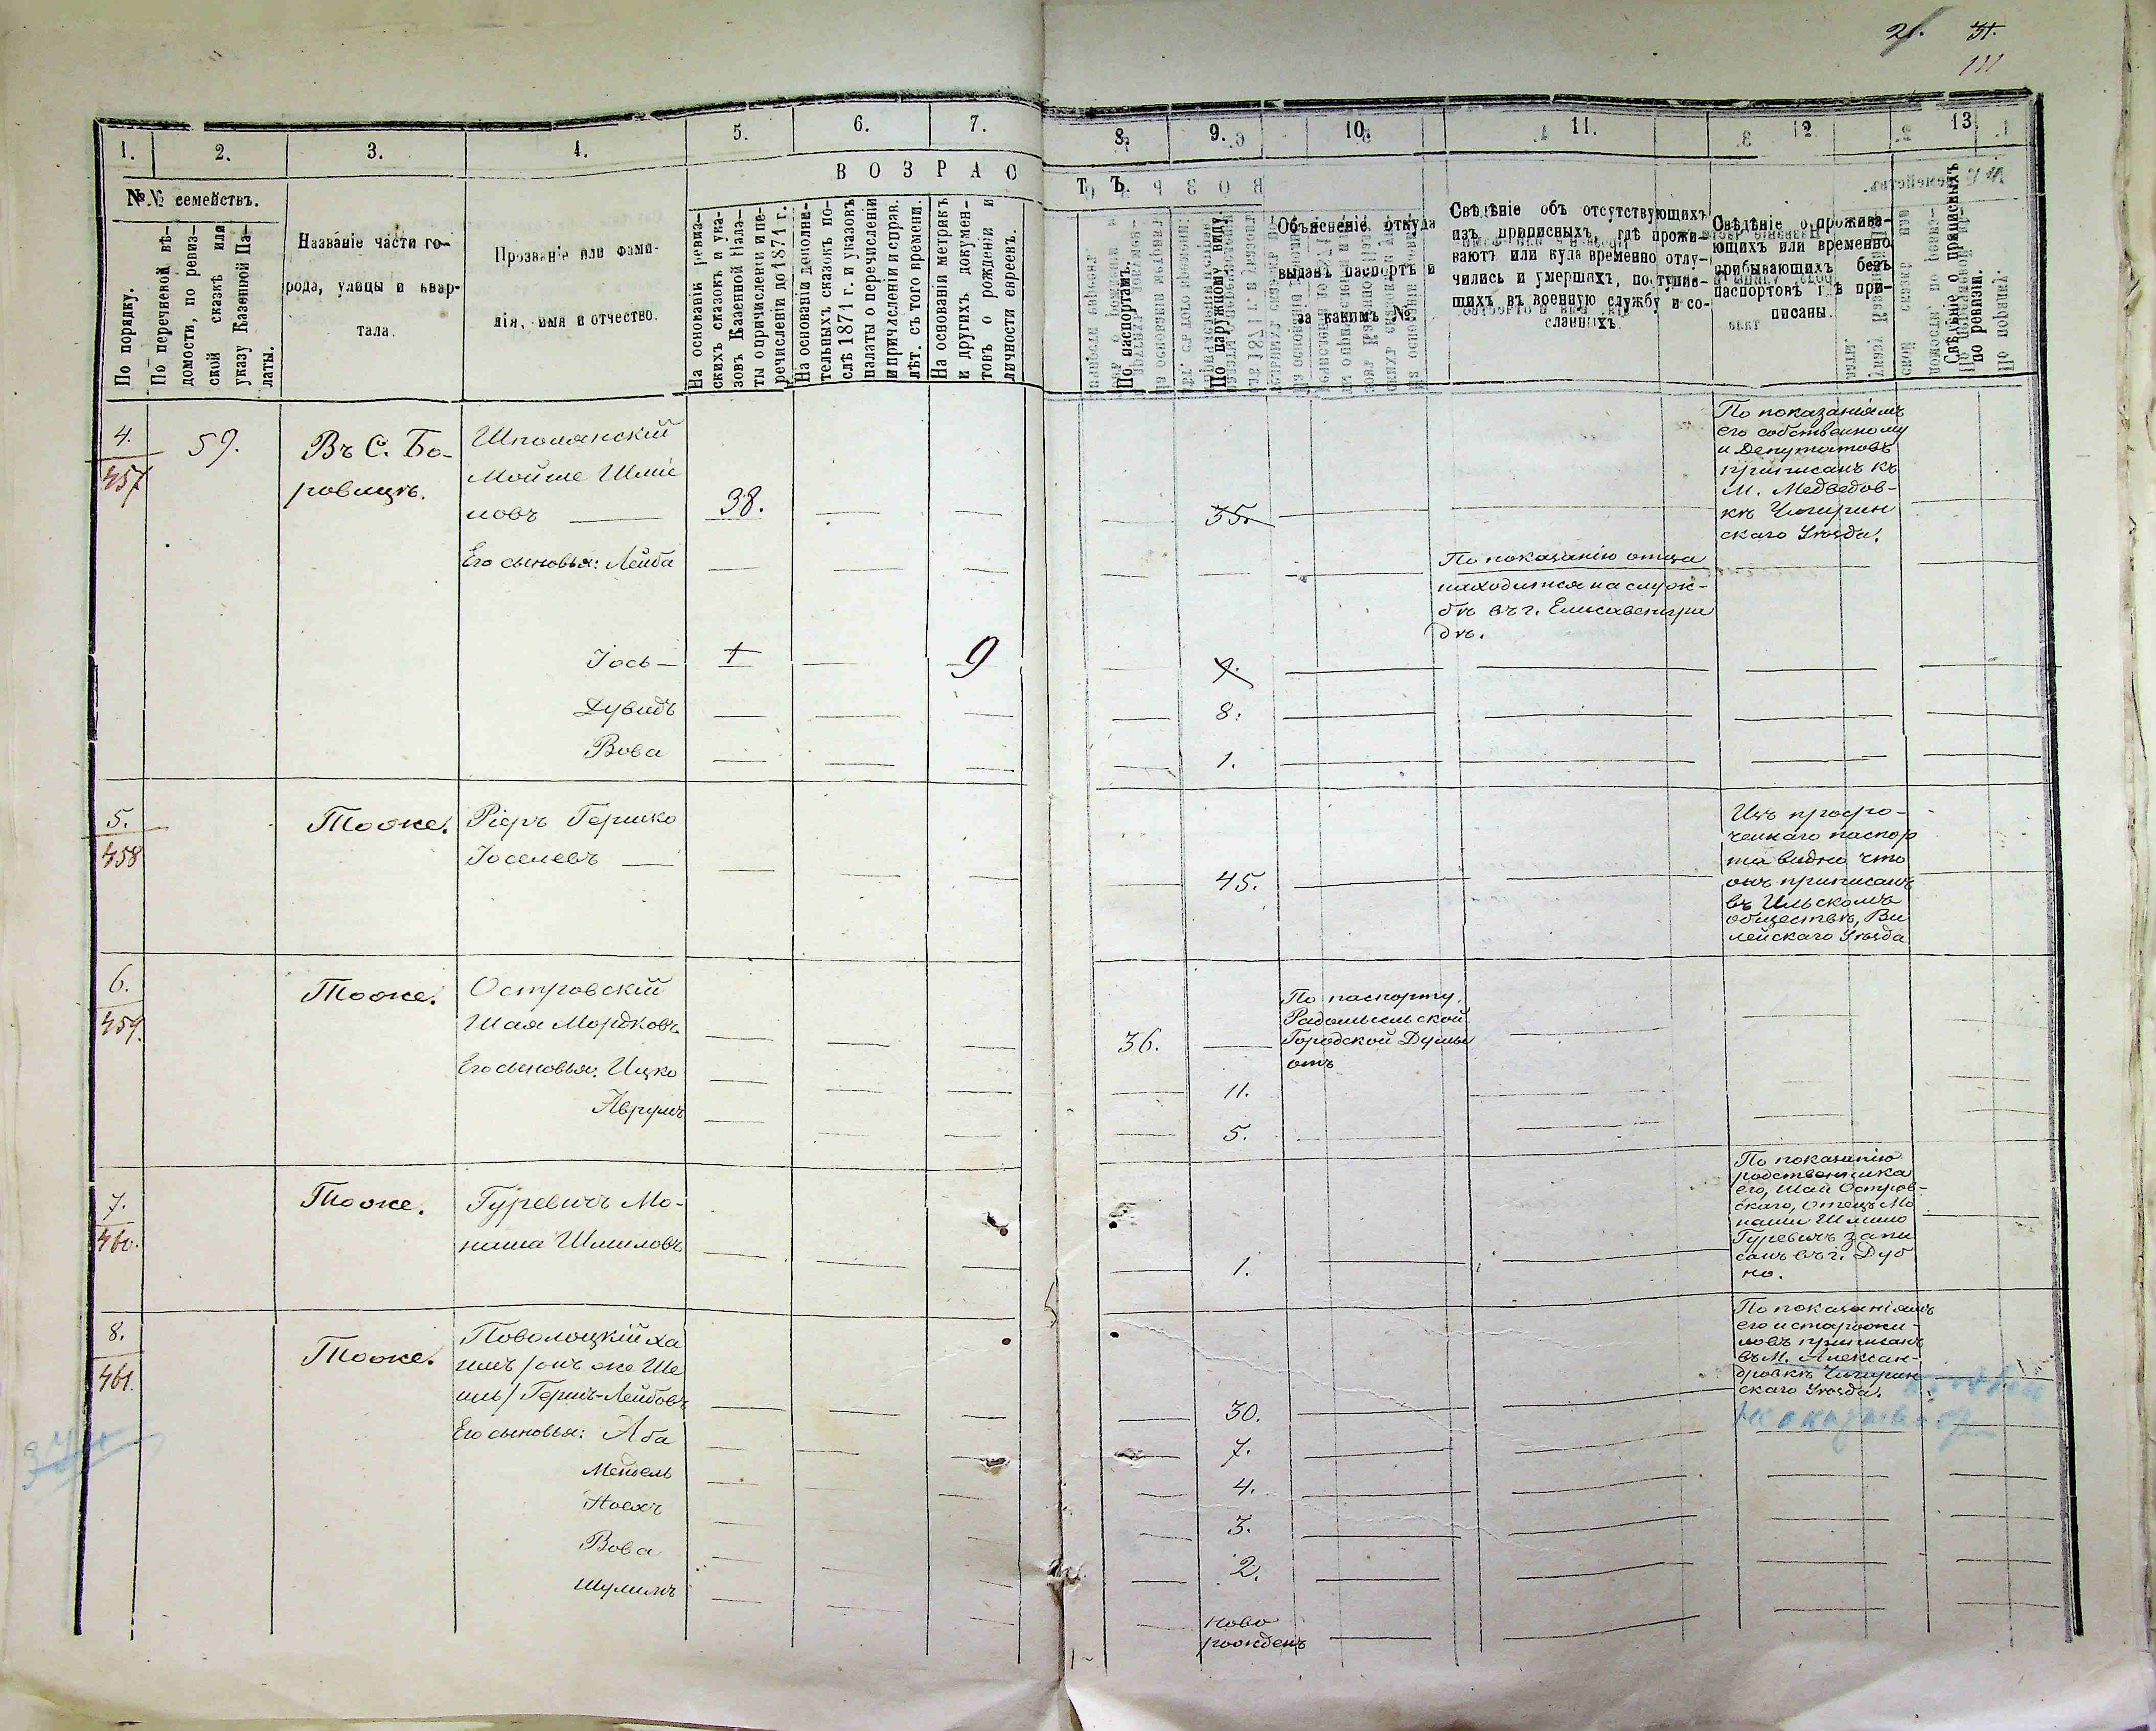 21. 31.
111
1. 2. 3. 4. 5. 6. 7. 8. 9. 10. 11. 12 13.
ВОЗРАСТЪ.
№№ семействъ.
По порядку.
По перечневой вѣ-
домости, по ревиз-
ской сказкѣ или
указу Казенной Па-
латы.
Названіе части го-
рода, улицы и квар-
тала.
Прозваніе или фами-
лія, имя и отчество.
На основаніи ревиз-
скихъ сказокъ и ука-
зовъ Казенной Пала-
ты о причисленіи и пе-
речисленіи до 1871 г.
На основаніи дополни-
тельныхъ сказокъ по-
слѣ 1871 г. и указовъ
палаты о перечисленіи
и причисленіи и справ.
лѣт. съ того времени.
На основаніи метрикъ
и другихъ докумен-
товъ о рожденіи и
личности евреевъ.
По паспортамъ.
По наружному виду.
Объясненіе откуда
выданъ паспортъ и
за какимъ №
Свѣдѣніе объ отсутствующихъ
изъ приписныхъ, гдѣ прожи-
ваютъ или куда временно отлу-
чились и умершихъ, поступив-
шихъ въ военную службу и со-
сланныхъ.
Свѣдѣніе о прожива-
ющихъ или временно
прибывающихъ безъ
паспортовъ гдѣ при-
писаны.
Свѣдѣніе о приписныхъ
по ревизіи.
4.
457
59.
Въ С. Бо-
ровицѣ.
Шполянскій
Мойше Шмі
ловъ
38.
35.
По показаніямъ
его собственному
и Депутатовъ
приписанъ къ
М. Медведов-
кѣ Чигирин
скаго Уѣзда.
Его сыновья: Лейба
По показанію отца
находится на служ-
бѣ въ г. Елисаветгра
дѣ.
Іось 1 9
9.
Дувидъ 8.
Вова 1.
5.
458
Тоже.
Ріеръ Гершко
Іоселевъ
45.
Изъ просро-
ченнаго паспор
та видно что
онъ приписанъ
въ Ильскомъ
обществѣ, Ви
лейскаго Уѣзда
6.
459.
Тоже.
Островскій
Шая Мордковъ
36.
По паспорту
Радомысльской
Городской Думы
отъ
Его сыновья: Ицко 11.
Аврумъ 5.
7.
460.
Тоже.
Гуревичъ Мо-
наша Шмиловъ
1.
По показанію
родственника
его, Шаи Остров-
скаго, отецъ Мо
наши Шмило
Гуревичъ запи
санъ въ г. Дуб
но.
8.
461.
Тоже.
Поволоцкій Ха
имъ /онъ же Ше
иль/ Гершъ-Лейбовъ
30.
По показаніямъ
его и старожи-
ловъ приписанъ
въ М. Алексан-
дровкѣ Чигирин
скаго Уѣзда.
Его сыновья: Аба 7.
Мендель 4.
Ноехъ 3.
Вова 2.
Шулимъ
Ново
рожденъ